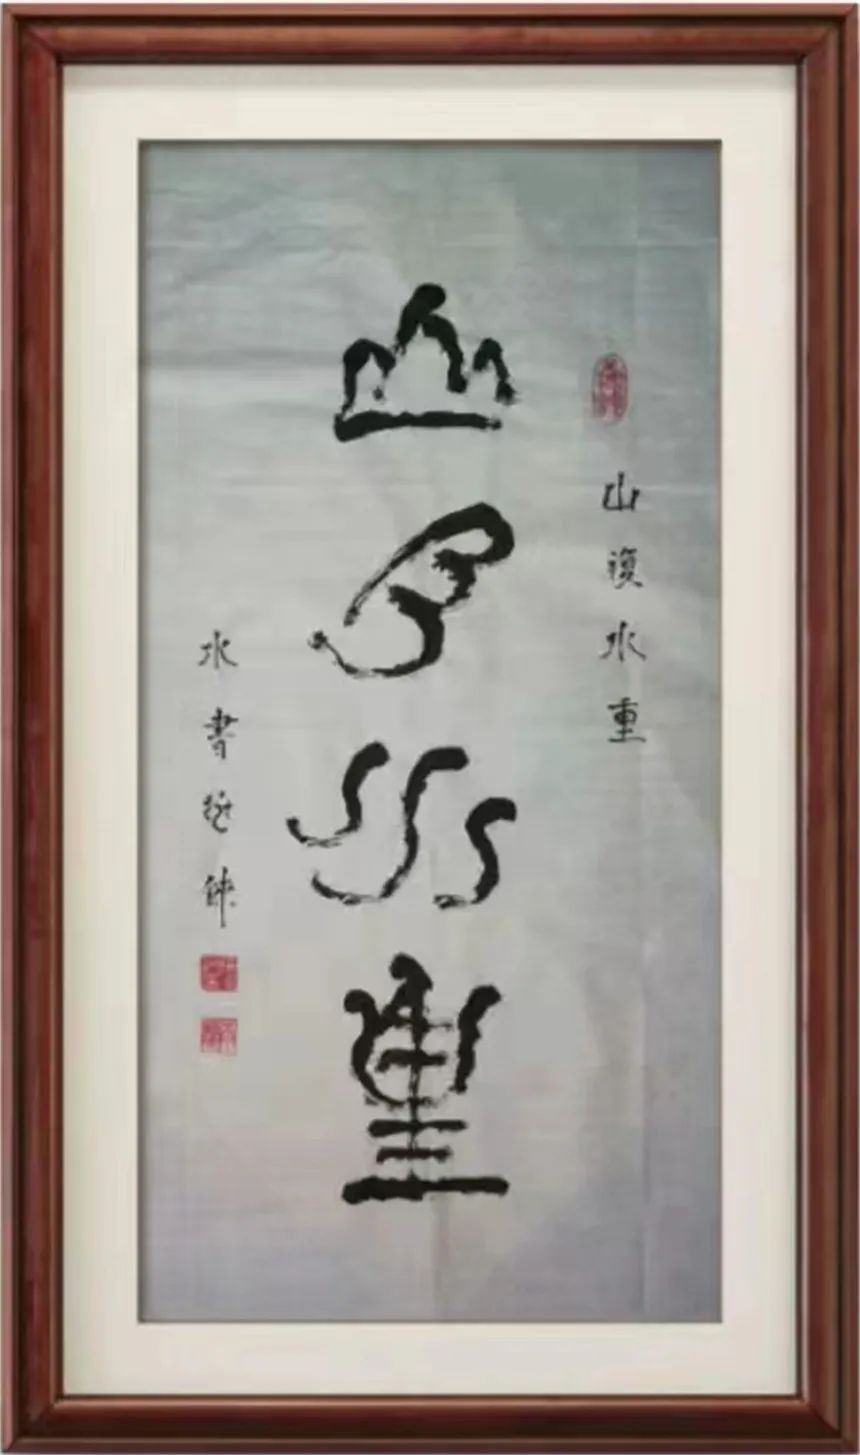 山复水重
山復水重
水書